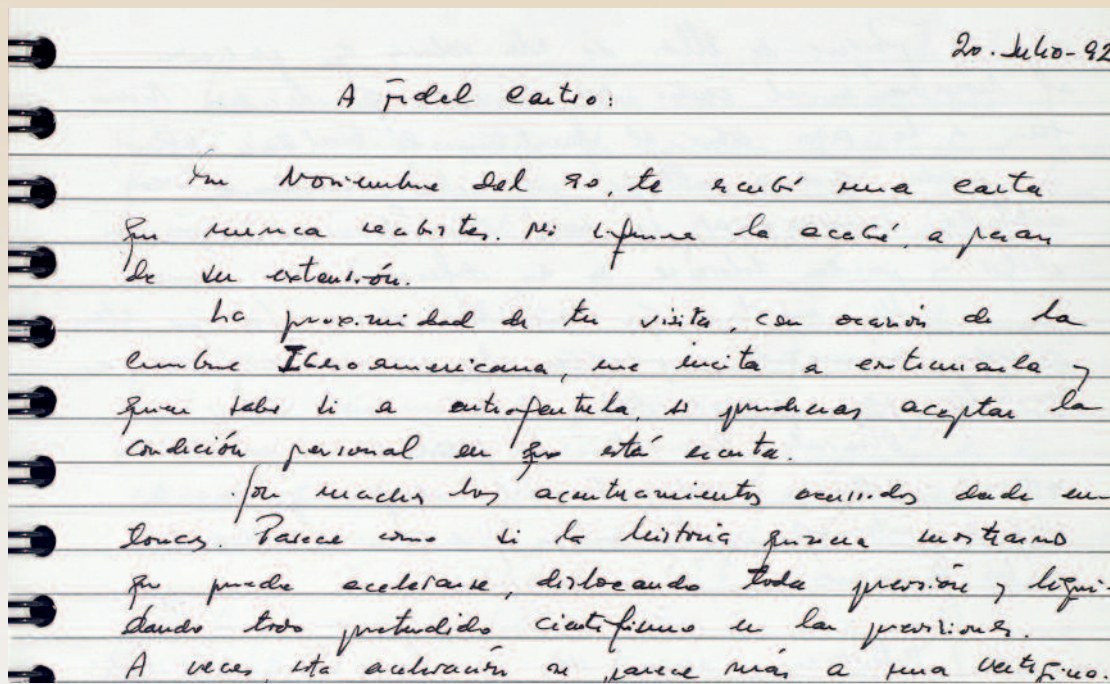 20-Julio-92
A Fidel Castro:
En Noviembre del 90, te escribí una carta
que nunca recibistes. Ni siquiera la acabé, a pesar
de su extensión.
La proximidad de tu visita, con ocasión de la
Cumbre Iberoamericana, me incita a continuarla y
quien sabe si a entregártela, si pudieras aceptar la
condición personal en que está escrita.
Son muchos los acontecimientos ocurridos desde en-
tonces. Parece como si la historia quisiera mostrarnos
que puede acelerarse, dislocando toda previsión y liqui-
dando todo pretendido cientifismo en las previsiones.
A veces, esta aceleración se parece más a una vertigino-